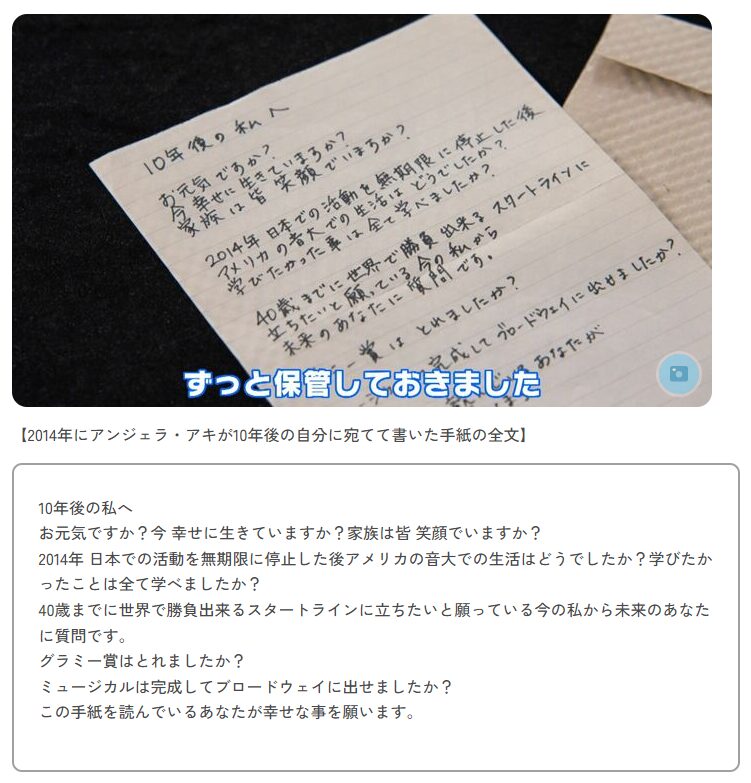 10年後の私へ
お元気ですか?
今 幸せに生きていますか?
家族は皆 笑顔でいますか?
2014年 日本での活動を無期限に停止した後
アメリカの音大での生活は どうでしたか?
学びたかった事は全て学べましたか?
40歳までに世界で勝負出来る スタートラインに
立ちたいと願っている今の私から
未来のあなたに 質問です。
ー賞は とれましたか?
完成して ブロードウェイに出せましたか?
あなたが
ずっと保管しておきました
【2014年にアンジェラ・アキが10年後の自分に宛てて書いた手紙の全文】
10年後の私へ
お元気ですか？今 幸せに生きていますか？家族は皆 笑顔でいますか？
2014年 日本での活動を無期限に停止した後アメリカの音大での生活はどうでしたか？学びたか
ったことは全て学べましたか？
40歳までに世界で勝負出来るスタートラインに立ちたいと願っている今の私から未来のあなた
に質問です。
グラミー賞はとれましたか？
ミュージカルは完成してブロードウェイに出せましたか？
この手紙を読んでいるあなたが幸せな事を願います。